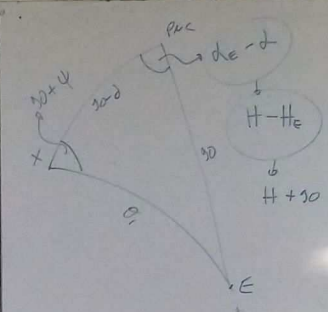 PNC
α_E - α
H - H_E
H + 90
90 + ψ
90 - δ
90
X
θ
E